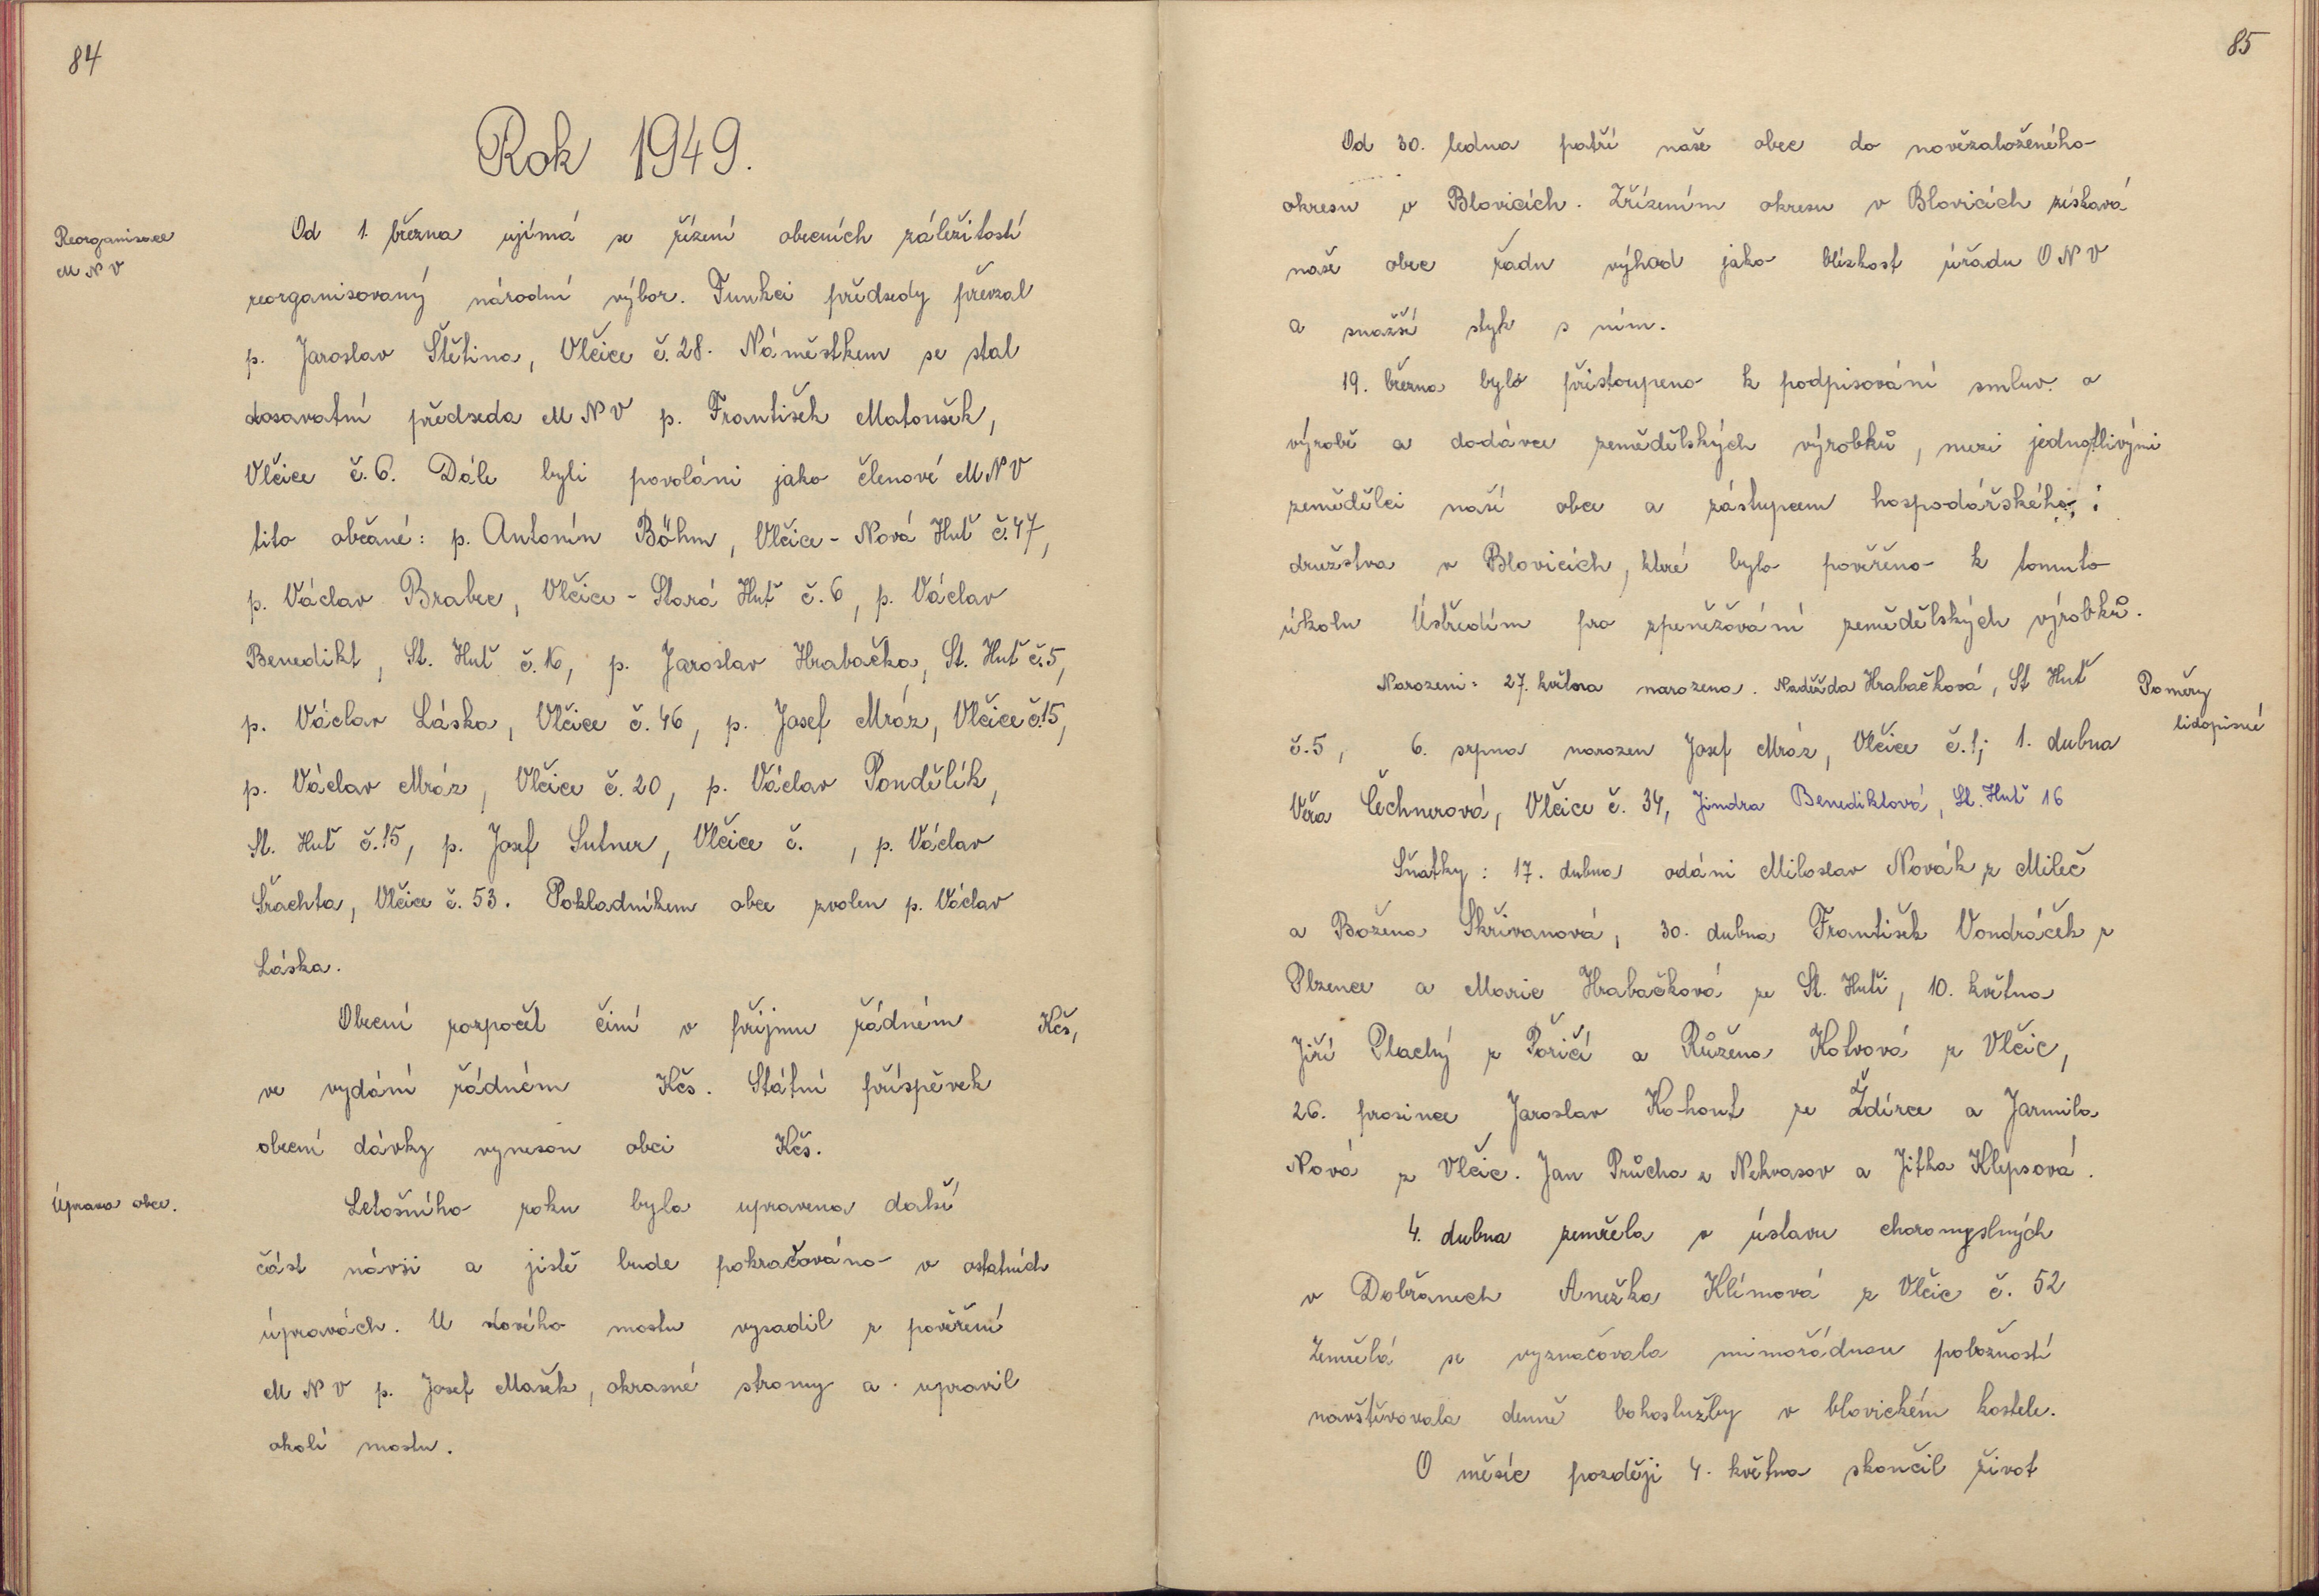 84
Rok 1949.
Reorganisace
MNV
Od 1. března ujímá se řízení obecních záležitostí
reorganisovaný národní výbor. Funkci předsedy převzal
p. Jaroslav Štětina, Vlčice č. 28. Náměstkem se stal
dosavatní předseda MNV p. František Matoušek,
Vlčice č. 6. Dále byli povoláni jako členové MNV
tito občané: p. Antonín Böhm, Vlčice - Nová Huť č. 47,
p. Václav Brabec, Vlčice - Stará Huť č. 6, p. Václav
Benedikt, St. Huť č. 16, p. Jaroslav Hrabačka, St. Huť č. 5,
p. Václav Láska, Vlčice č. 46, p. Josef Mráz, Vlčice č. 15,
p. Václav Mráz, Vlčice č. 20, p. Václav Pondělík,
St. Huť č. 15, p. Josef Sutner, Vlčice č. , p. Václav
Šrachta, Vlčice č. 53. Pokladníkem obce zvolen p. Václav
Láska.
Obecní rozpočet činí v příjmu řádném Kčs,
ve vydání řádném Kčs. Státní příspěvek
obecní dávky vynesou obci Kčs.
Úprava obce.
Letošního roku byla upravena další
část návsi a jistě bude pokračováno v ostatních
úpravách. U nového mostu vysadil z pověření
MNV p. Josef Mašek, okrasné stromy a upravil
okolí mostu.
85
Od 30. ledna patří naše obec do nověza­loženého
okresu v Blovicích. Zřízením okresu v Blovicích získavá
naše obec řadu výhod jako blízkost úřadu ONV
a snažší styk s ním.
19. března bylo přistoupeno k podpisování smluv o
výrobě a dodávce zemědělských výrobků, mezi jednotlivými
zemědělci naší obce a zástupcem hospodářského
družstva v Blovicích, které bylo pověřeno k tomuto
úkolu Ústředím pro zpeněžování zemědělských výrobků.
Poměry
lidopisné
Narozeni: 27. května narozena. Naděžda Hrabačková, St Huť
č. 5, 6. srpna narozen Josef Mráz, Vlčice č. 1; 1. dubna
Věra Čechnerová, Vlčice č. 34, Jindra Benediktová, St. Huť 16
Sňatky: 17. dubna odáni Miloslav Novák z Mileč
a Božena Skřivanová, 30. dubna František Vondráček z
Plzence a Marie Hrabačková ze St. Huti, 10. května
Jiří Plachý z Poříčí a Růžena Kotvová z Vlčic,
26. prosince Jaroslav Kohout ze Ždírce a Jarmila
Nová z Vlčic. Jan Průcha z Nekvasov a Jitka Klepsová.
4. dubna zemřela v ústavu choromyslných
v Dobřanech Anežka Klímová z Vlčic č. 52
Zemřelá se vyznačovala mimořádnou pobožností
navštěvovala denně bohoslužby v blovickém kostele.
O měsíc později 4. května skončil život